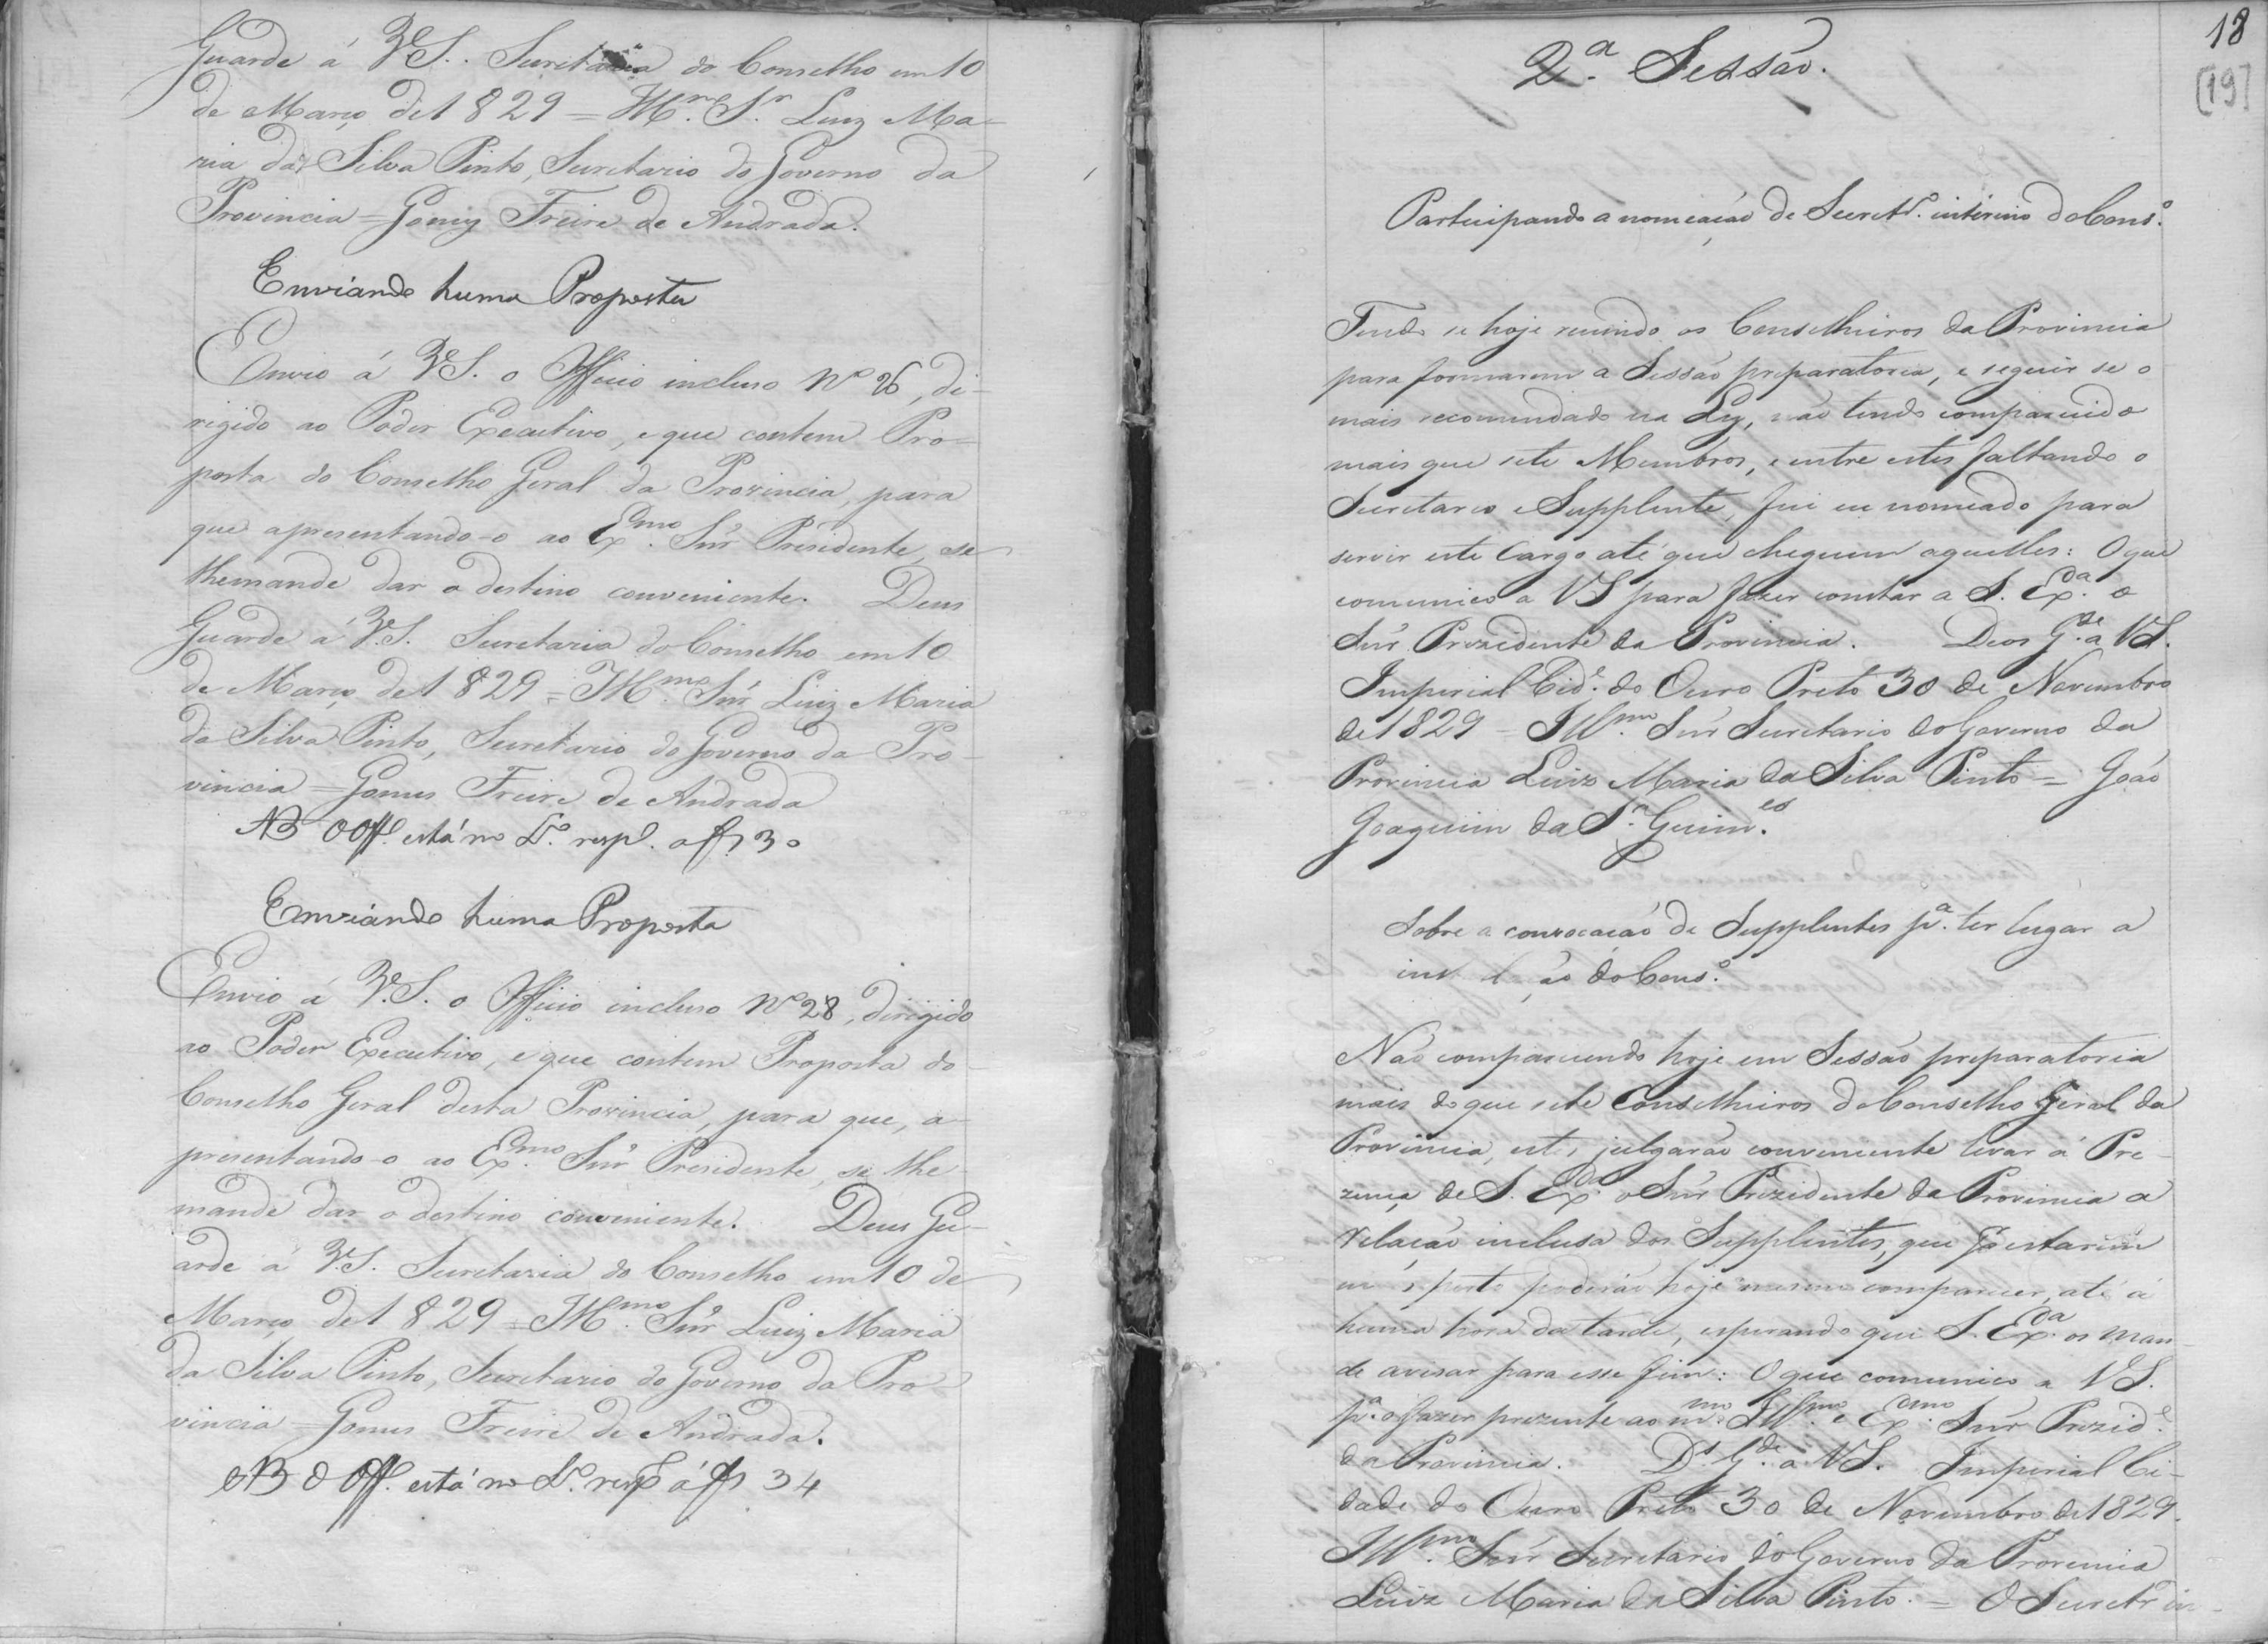 Guarde á V.S. Secretaria do Conselho em 10
de Março de 1829 = Illmo. Sr. Luiz Ma-
ria da Silva Pinto, Secretario do Governo da
Provincia = Gomes Freire de Andrada.
Enviando huma Proposta
Envio á V.S. o Officio incluso Nº 26, di-
rigido ao Poder Executivo, e que contem Pro-
posta do Conselho Geral da Provincia, para
que apresentando-o ao Exmo. Snr Presidente, se
lhe mande dar o destino conveniente. Deus
Guarde á V.S. Secretaria do Conselho em 10
de Março de 1829 = Illmo. Snr Luiz Maria
da Silva Pinto, Secretario do Governo da Pro-
vincia = Gomes Freire de Andrada
NB O Off. está no L.º resp. a fs 30
Enviando huma Proposta
Envio á V.S. o Officio incluso Nº 28, dirigido
ao Poder Executivo, e que contem Proposta do
Conselho Geral desta Provincia, para que, a-
presentando-o ao Exmo. Snr Presidente, se lhe
mande dar o destino conveniente. Deus Gu-
arde á V.S. Secretaria do Conselho em 10 de
Março de 1829 = Illmo. Snr Luiz Maria
da Silva Pinto, Secretario do Governo da Pro-
vincia = Gomes Freire de Andrada.
NB O Off. está no L.º resp. á fs 34
18
[19]
2.ª Sessão.
Participando a nomeação de Secretr.º interino do Cons.º
Tendo se hoje reunido os Conselheiros da Provincia
para formarem a Sessão preparatoria, e seguir se o
mais recomendado na Ley, não tendo comparecido
mais que sete Membros, e entre estes faltando o
Secretario e Supplente, fui eu nomeado para
servir este Cargo até que cheguem aquelles: O que
comunico a VS para fazer constar a S. Ex.ª o
Snr Prezidente da Provincia. Deos G.de a VS.
Imperial Cid.e do Ouro Preto 30 de Novembro
de 1829 = Illmo. Snr Secretario do Governo da
Provincia Luiz Maria da Silva Pinto = João
Joaquim da S.ª Guim.es
Sobre a convocação de Supplentes p.ª ter lugar a
do Cons.º
Não comparecendo hoje em Sessão preparatoria
mais do que sete Conselheiros do Conselho Geral da
Provincia, estes julgarão conveniente levar á Pre-
zença de S. Ex.ª o Snr Prezidente da Provincia a
relação inclusa dos Supplentes, que por estarem
mais perto poderão hoje mesmo comparecer, até á
huma hora da tarde, esperando que S. Ex.ª os man-
de avisar para esse fim: O que comunico a VS.
p.ª o fazer prezente ao m.mo Illmo. e Exmo. Snr Prezid.e
da Provincia. D.s G.de a VS. Imperial Ci-
dade do Ouro Preto 30 de Novembro de 1829.
Illmo. Snr Secretario do Governo da Provincia
Luiz Maria da Silva Pinto. = O Secretr.º in-